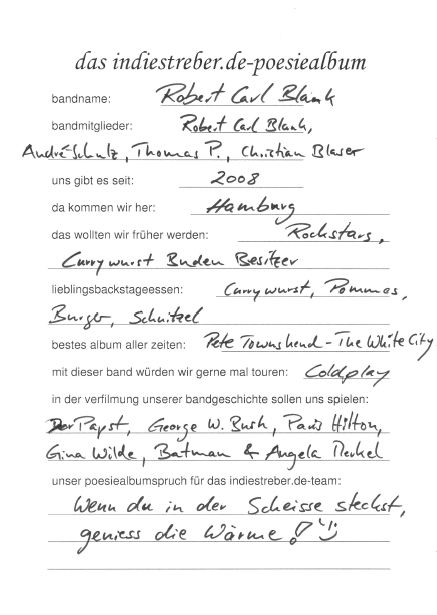 das indiestreber.de-poesiealbum
bandname: Robert Carl Blank
bandmitglieder: Robert Carl Blank,
André Schulz, Thomas P., Christian Blaser
uns gibt es seit: 2008
da kommen wir her: Hamburg
das wollten wir früher werden: Rockstars,
Currywurst Buden Besitzer
lieblingsbackstageessen: Currywurst, Pommes,
Burger, Schnitzel
bestes album aller zeiten: Pete Townshend - The White City
mit dieser band würden wir gerne mal touren: Coldplay
in der verfilmung unserer bandgeschichte sollen uns spielen:
Der Papst, George W. Bush, Paris Hilton,
Gina Wilde, Batman & Angela Merkel
unser poesiealbumspruch für das indiestreber.de-team:
Wenn du in der Scheisse steckst,
geniess die Wärme!